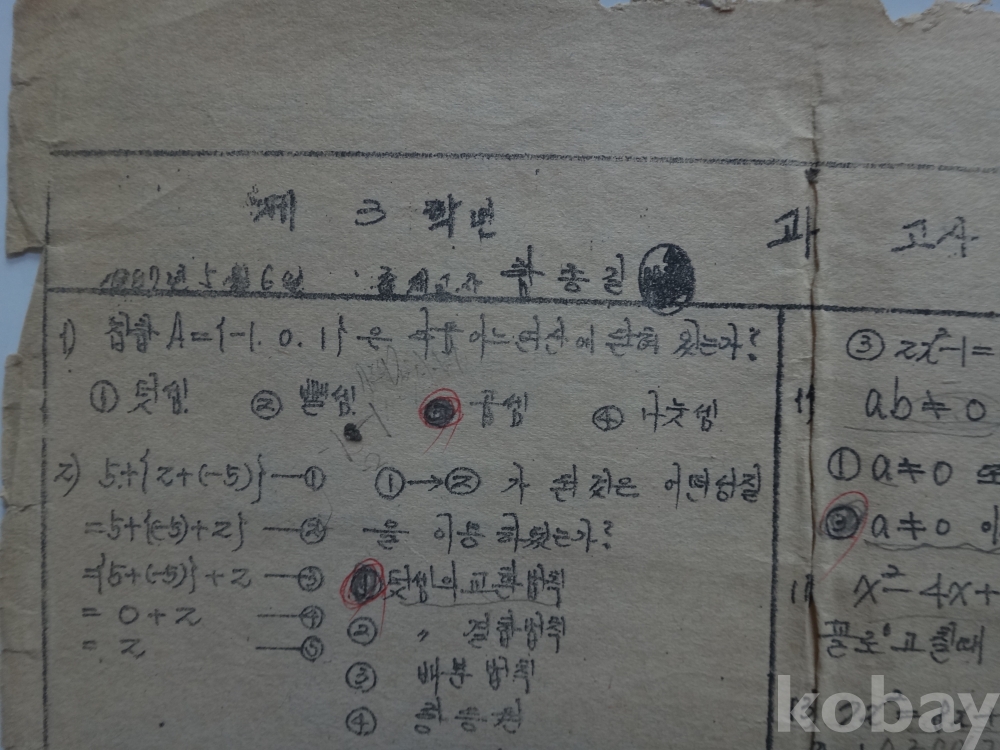 제 3 학년 과 고사
5월 6일 출제교사
1) 집합 A={-1. 0. 1}은 다음 어느 연산에 닫혀 있는가?
① 덧셈 ② 뺄셈 곱셈 ④ 나눗셈
2) 5+{2+(-5)} —① ①→② 가 된 것은 어떤성질
=5+{(-5)+2} —② 을 이용 하였는가?
={5+(-5)}+2 —③ ① 덧셈의 교환법칙
= 0+2 —④ ② 〃 결합법칙
= 2 —⑤
③ 배분법칙
④
③ 2x²-1=
ab≠0
① a≠0 또
② a≠0 이
x²-4x+
꼴로 고칠때
kobay